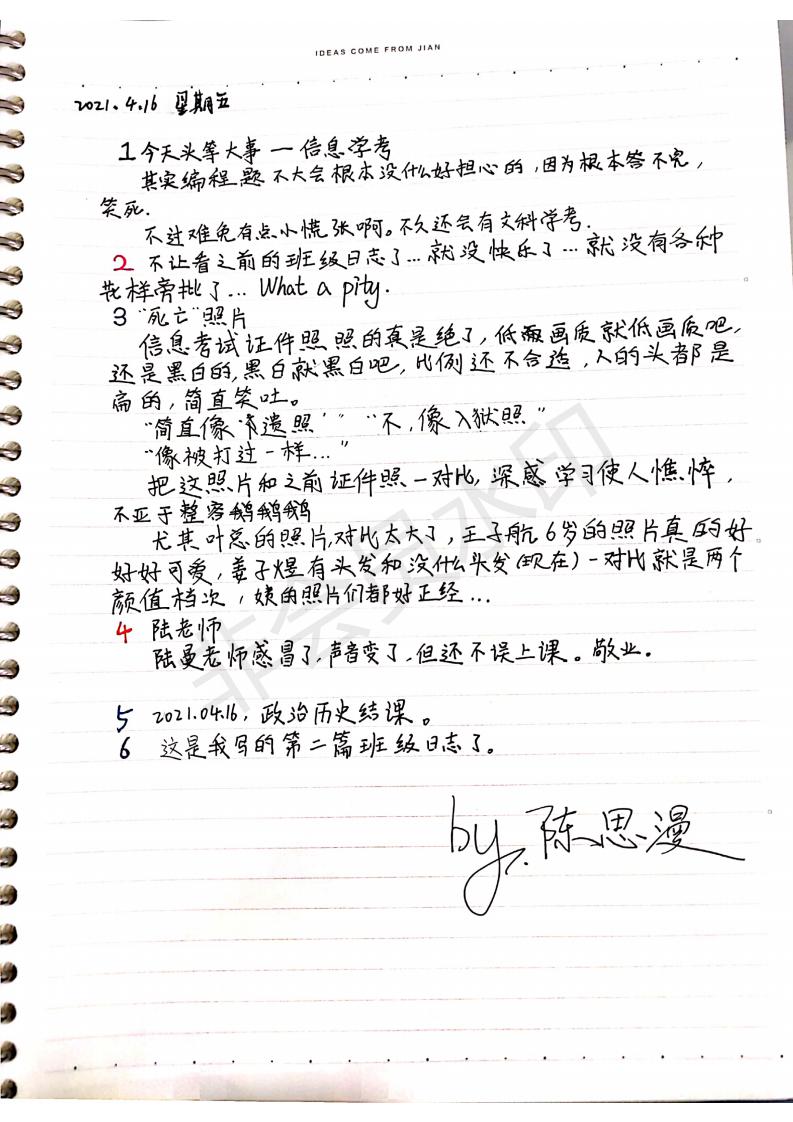 IDEAS COME FROM JIAN
2021.4.16 星期五
1 今天头等大事一信息学考
其实编程题不大会根本没什么好担心的,因为根本答不完,
笑死.
不过难免有点小慌张啊。不久还会有文科学考.
2 不让看之前的班级日志了...就没快乐了...就没有各种
花样旁批了... What a pity.
3 "死亡"照片
信息考试证件照照的真是绝了,低画质就低画质吧,
还是黑白的,黑白就黑白吧,比例还不合适,人的头都是
扁的,简直笑吐。
"简直像遗照" "不,像入狱照"
"像被打过一样..."
把这照片和之前证件照一对比,深感学习使人憔悴,
不亚于整容鹅鹅鹅
尤其叶总的照片,对比太大了,王子航6岁的照片真的好
好好可爱,姜子煜有头发和没什么头发(现在)一对比就是两个
颜值档次,姨的照片们都好正经...
4 陆老师
陆曼老师感冒了,声音变了,但还不误上课。敬业.
5 2021.04.16,政治历史结课。
6 这是我写的第二篇班级日志了。
by. 陈思漫
非会员水印